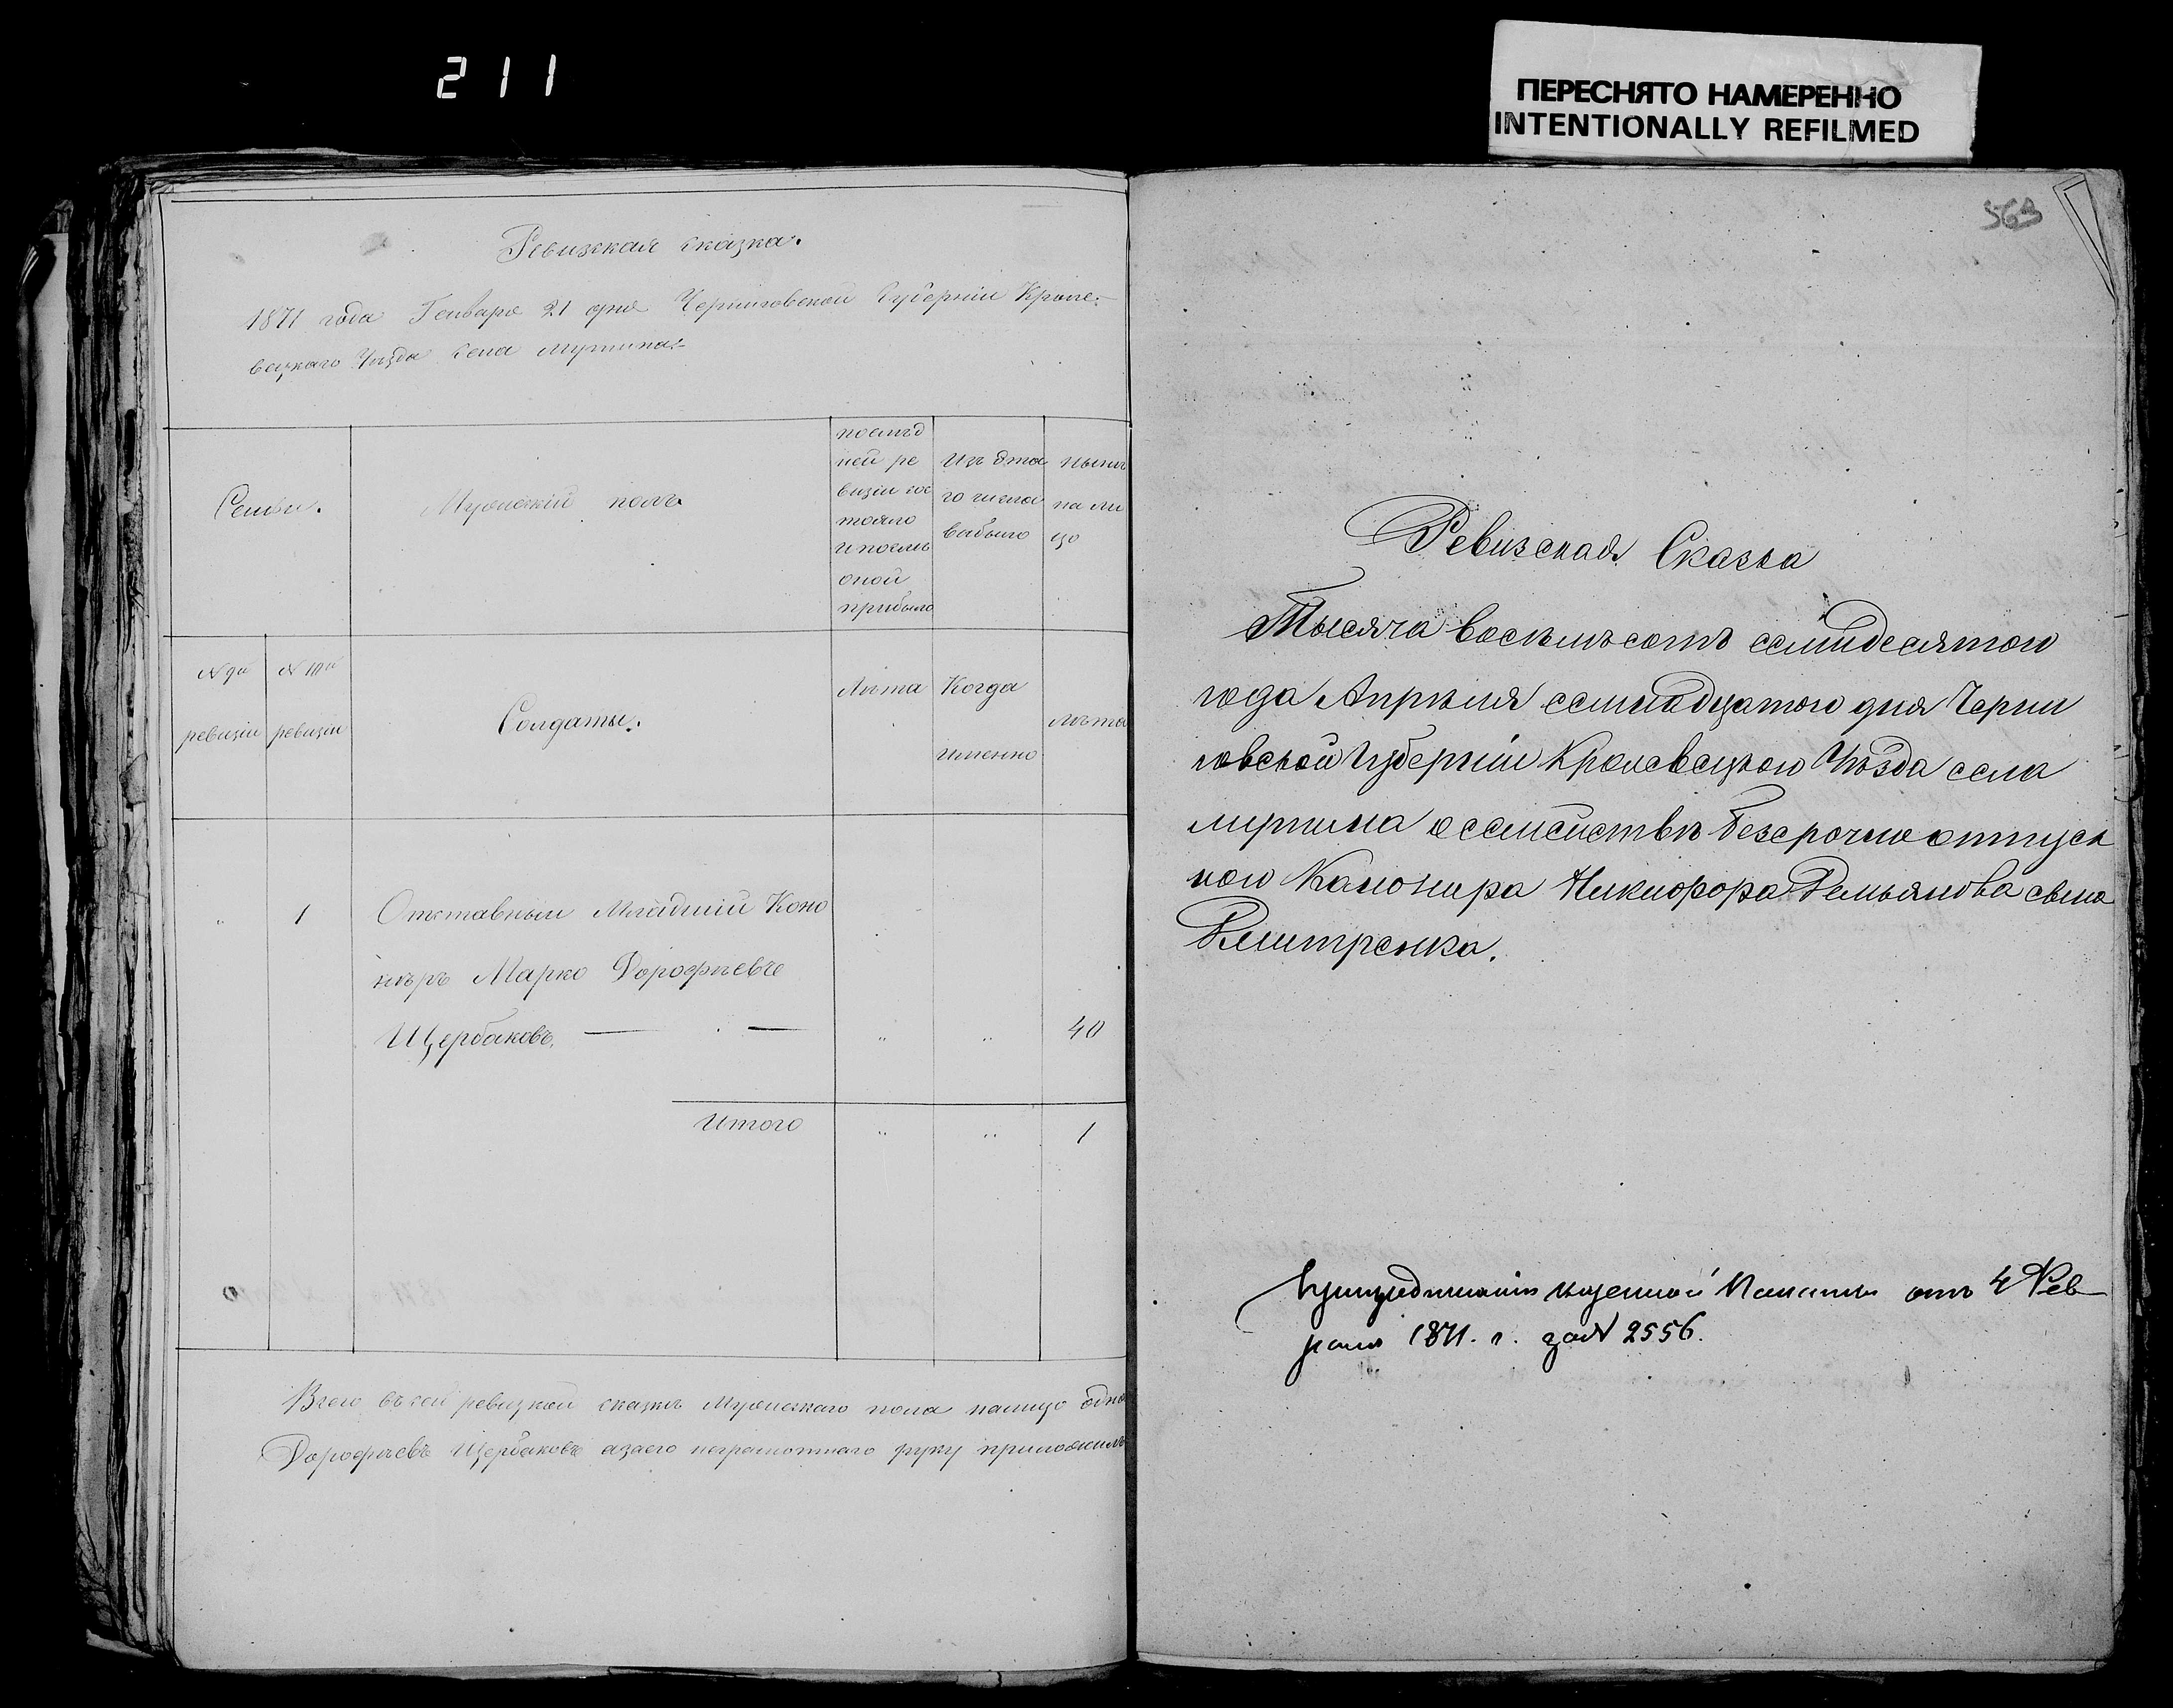 211
ПЕРЕСНЯТО НАМЕРЕННО
INTENTIONALLY REFILMED
Ревизская сказка.
1871 года Генваря 21 дня Черниговской Губернии Кроле-
вецкаго Уѣзда села Мутина:
Семьи.
Мужескій полъ.
послѣд
ней ре
визіи сос
тояло
и послѣ
оной
прибыло
Изъ ѳто
го числа
выбыло
нынѣ
на ли
цо
№ 9й
ревизіи
№ 10й
ревизіи
Солдаты.
Лѣта
Когда
именно
лѣта
1
Отставный Младшій Коно
нѣръ Марко Дорофѣевъ
Щербаковъ. — — " " 40
Итого " " 1
Всего въ сей ревизкой сказкѣ Мужескаго пола налицо одна
Дорофѣевъ Щербаковъ азаего неграмотнаго руку приложилъ
563
Ревизская Сказка
Тысяча восѣмьсотъ семидесятого
года Апрѣля семнадцатого дня Черни
говской Губерніи Кролевецкого Уѣзда села
мутина о семействѣ безсрочно отпуск
ного Канонира Никифора Демьянова сына
Дмитренка.
казенной Палаты отъ 4 Фев
раля 1871. г. за № 2556.